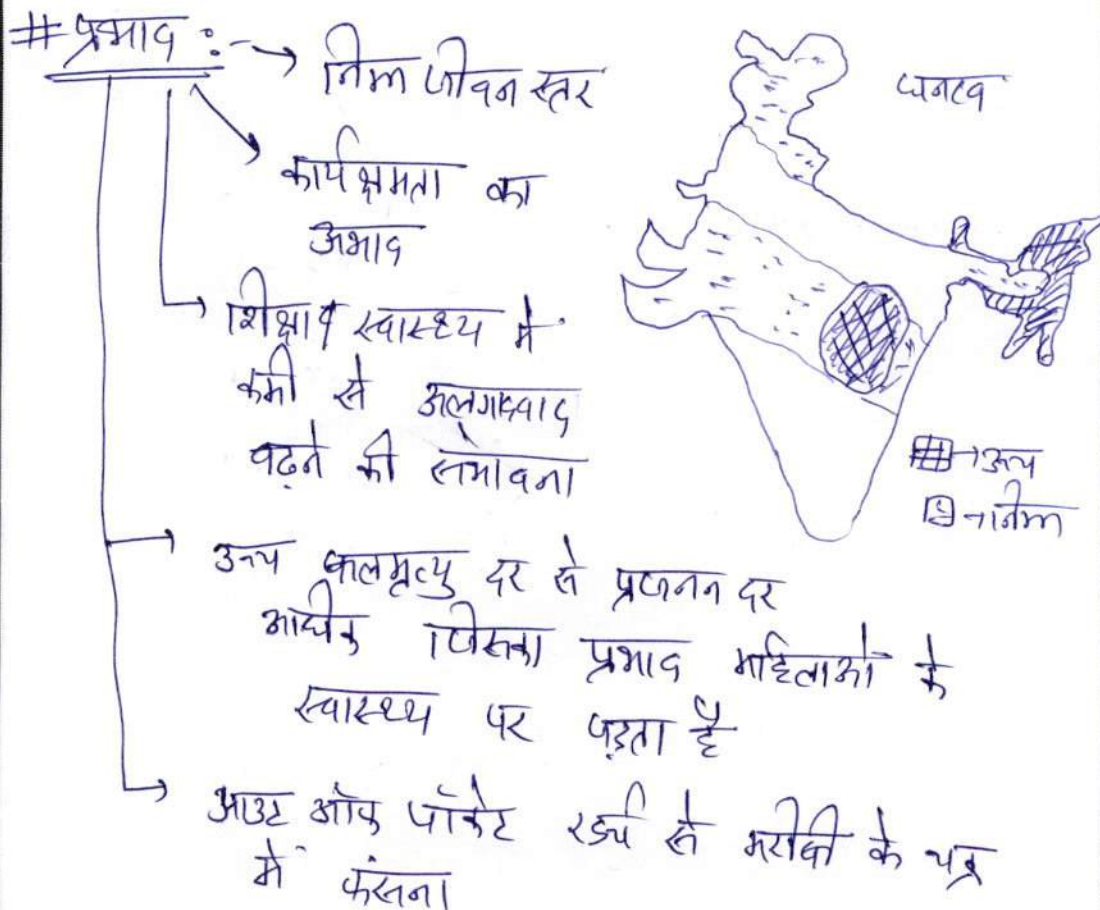 # प्रभाव :- → निम्न जीवन स्तर
→ कार्यक्षमता का
अभाव
→ शिक्षा व स्वास्थ्य में
कमी से अलगाववाद
बढ़ने की संभावना
→ उच्च बालमृत्यु दर से प्रजनन दर
अधिक जिसका प्रभाव महिलाओं के
स्वास्थ्य पर पड़ता है
→ आउट ऑफ पॉकेट खर्च से गरीबी के चक्र
में फंसना
घनत्व
→ उच्च
→ निम्न